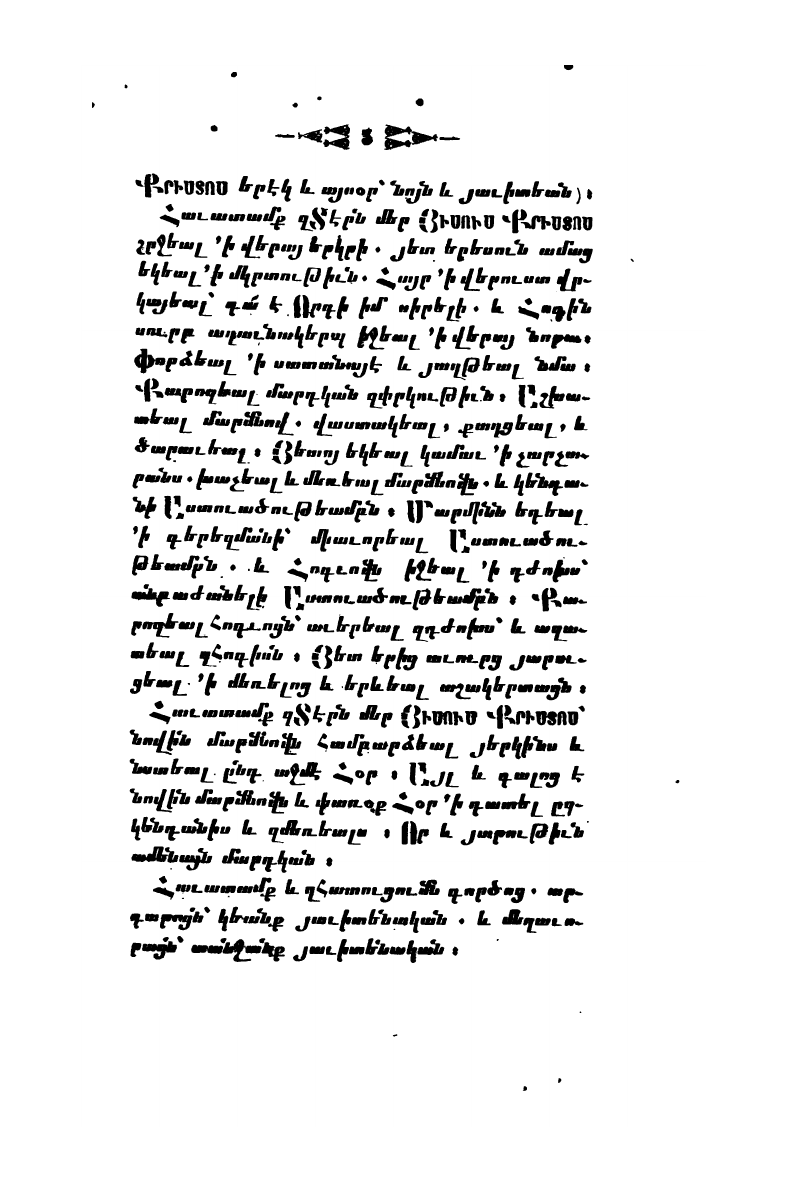 5
Քրիստոս երէկ և այսօր՝ նոյն և յաւիտեան)։
Հաւատամք զՏէրն մեր Յիսուս Քրիստոս
շրջեալ ՚ի վերայ երկրի. յետ երեսուն ամաց
եկեալ ՚ի մկրտութիւն. Հայր ՚ի վերուստ վը-
կայեալ՝ դա՛ է Որդի իմ սիրելի. և Հոգին
սուրբ աղաւնակերպ իջեալ ՚ի վերայ նորա։
Փորձեալ ՚ի սատանայէ և յաղթեալ նմա։
Քարոզեալ մարդկան զփրկութիւն։ Աշխա-
տեալ մարմնով. վաստակեալ, քաղցեալ, և
ծարաւեալ։ Յետոյ եկեալ կամաւ ՚ի չարչա-
րանս. խաչեալ և մեռեալ մարմնովն. և կենդա-
նի Աստուածութեամբն։ Մարմինն եդեալ
՚ի գերեզմանի՝ միաւորեալ Աստուածու-
թեամբն. և Հոգւովն իջեալ ՚ի դժոխս՝
անբաժանելի Աստուածութեամբն։ Քա-
րոզեալ Հոգւոցն՝ աւերեալ զդժոխս՝ և ազա-
տեալ զՀոգիսն։ Յետ երից աւուրց յարու-
ցեալ ՚ի մեռելոց և երևեալ աշակերտացն։
Հաւատամք զՏէրն մեր Յիսուս Քրիստոս՝
նովին մարմնովն համբարձեալ յերկինս և
նստեալ ընդ աջմէ Հօր։ Այլ և գալոց է
նովին մարմնովն և փառօք Հօր ՚ի դատել ըզ-
կենդանիս և զմեռեալս։ Որ և յարութիւն
ամենայն մարդկան։
Հաւատամք և զհատուցումն գործոց. ար-
դարոցն՝ կեանք յաւիտենական. և մեղաւո-
րացն՝ տանջանք յաւիտենական։